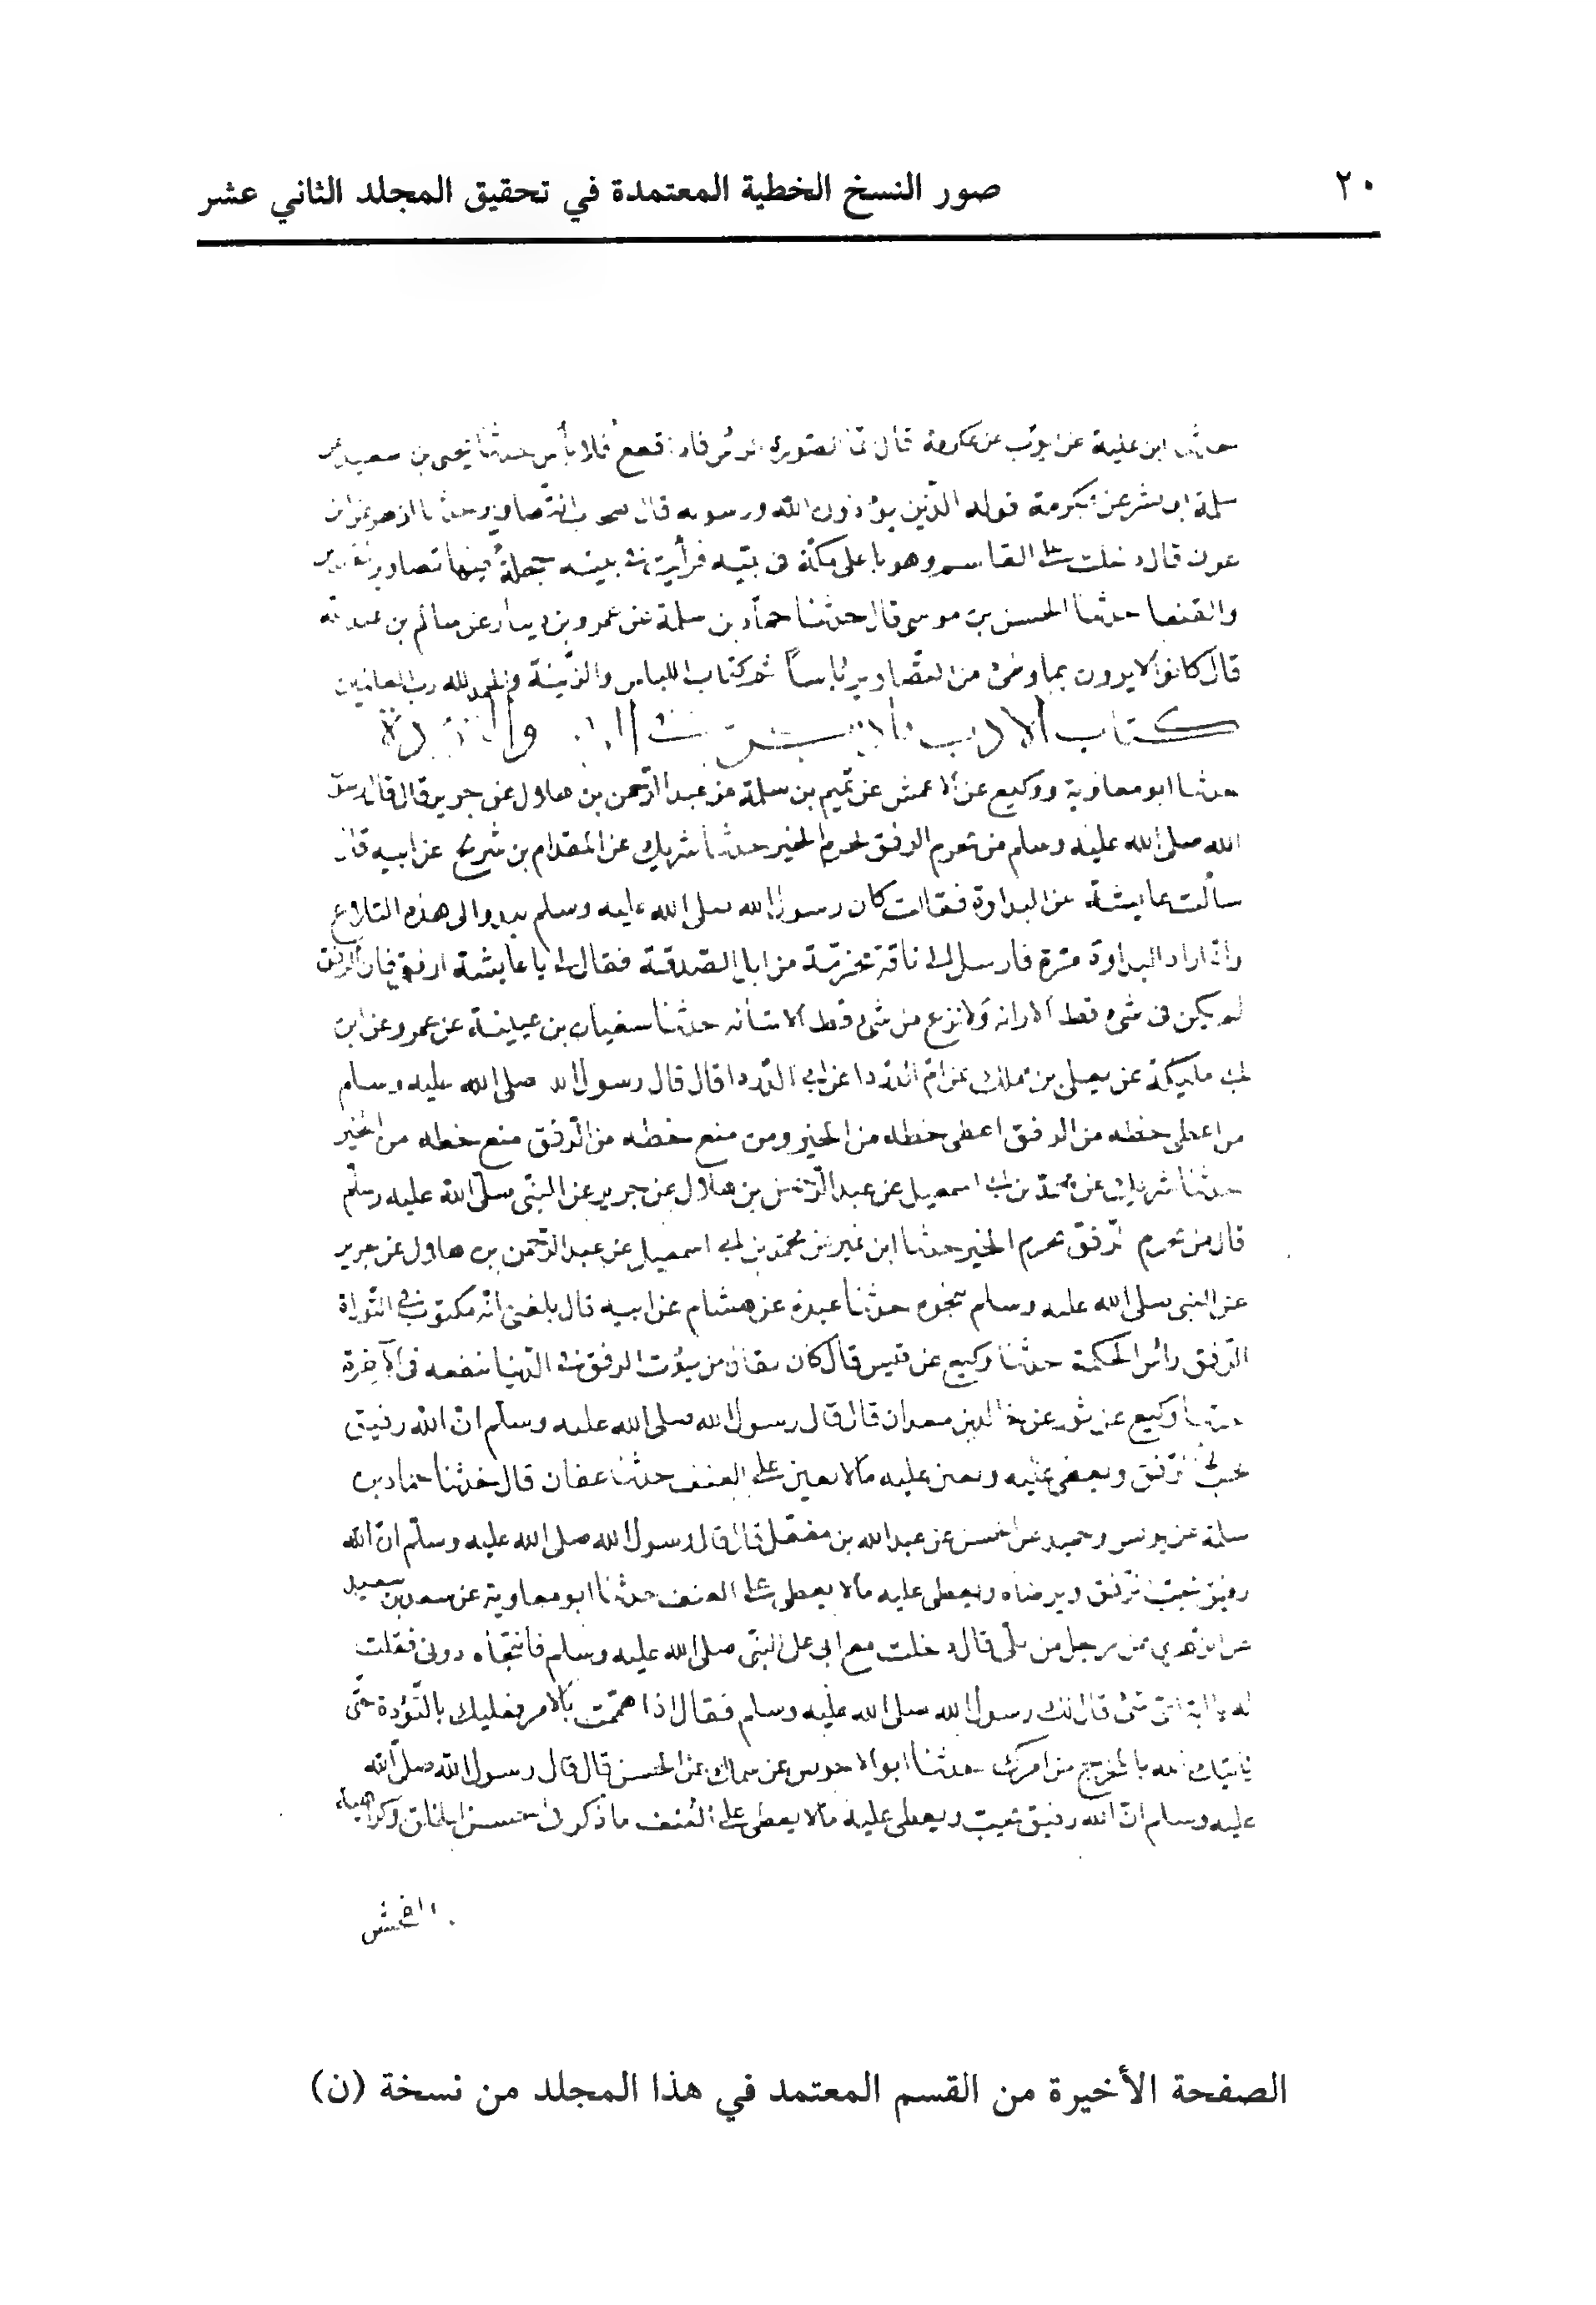 ٢٠
صور النسخ الخطية المعتمدة في تحقيق المجلد الثاني عشر
ابن علية عن ايوب عن عكرمة قال فلا بأس حدثنا يحيى بن سعيد عن
سلمة ابى بشر عن عكرمة قوله الذين يؤذون الله ورسوله قال اصحاب التصاوير حدثنا ازهر عن ابن
عون قال دخلت على القاسم وهو باعلى مكة فى بيته فرأيت فى بيته حجلة فيها تصاوير
والعنقا حدثنا الحسن بن موسى قال حدثنا حماد بن سلمة عن عمرو بن دينار عن سالم بن عبد الله
قال كانوا لا يرون بما وطئ من التصاوير بأسا تم كتاب اللباس والزينة والحمد لله رب العالمين
كتاب الادب
حدثنا ابو معاوية ووكيع عن الاعمش عن تميم بن سلمة عن عبد الرحمن بن هلال عن جرير قال قال رسول
الله صلى الله عليه وسلم من يحرم الرفق يحرم الخير حدثنا شريك عن المقدام بن شريح عن ابيه قال
سألت عايشة عن البداوة فقالت كان رسول الله صلى الله عليه وسلم يبدو الى هذه التلاع
وانه اراد البداوة مرة فارسل الى ناقة محرمة من ابل الصدقة فقال لى يا عايشة ارفقى فان الرفق
لم يكن فى شئ قط الا زانه ولا نزع من شئ قط الا شانه حدثنا سفيان بن عيينة عن عمرو عن ابن
ابى مليكة عن يعلى بن مملك عن ام الدردا عن ابى الدردا قال قال رسول الله صلى الله عليه وسلم
من اعطى حظه من الرفق اعطى حظه من الخير ومن منع حظه من الرفق منع حظه من الخير
حدثنا شريك عن محمد بن ابى اسمعيل عن عبد الرحمن بن هلال عن جرير عن النبى صلى الله عليه وسلم
قال من يحرم الرفق يحرم الخير حدثنا ابن نمير عن محمد بن ابى اسمعيل عن عبد الرحمن بن هلال عن جرير
عن النبى صلى الله عليه وسلم بنحوه حدثنا عبدة عن هشام عن ابيه قال بلغنى انه مكتوب فى التوراة
الرفق رأس الحكمة حدثنا وكيع عن قيس قال كان يقال من يؤت الرفق فى الدنيا نفعه فى الآخرة
حدثنا وكيع عن ثور عن خالد بن معدان قال قال رسول الله صلى الله عليه وسلم ان الله رفيق
يحب الرفق ويعطى عليه ويعين عليه ما لا يعين على العنف حدثنا عفان قال حدثنا حماد بن
سلمة عن يونس وحميد عن الحسن عن عبد الله بن مغفل قال قال رسول الله صلى الله عليه وسلم ان الله
رفيق يحب الرفق ويرضاه ويعطى عليه ما لا يعطى على العنف حدثنا ابو معاوية عن سعد بن سعيد
عن الزهري عن رجل من بلى قال دخلت مع ابى على النبى صلى الله عليه وسلم فانتجاه دونى فقلت
له يا ابة اى شئ قال لك رسول الله صلى الله عليه وسلم فقال اذا هممت بالامر فعليك بالتؤدة حتى
يأتيك الله بالمخرج من امرك حدثنا ابو الاحوص عن سماك عن الحسن قال قال رسول الله صلى الله
عليه وسلم ان الله رفيق يحب ويعطى عليه ما لا يعطى على العنف ما ذكر فى حسن الخلق وكراهية
الفحش
الصفحة الأخيرة من القسم المعتمد في هذا المجلد من نسخة (ن)